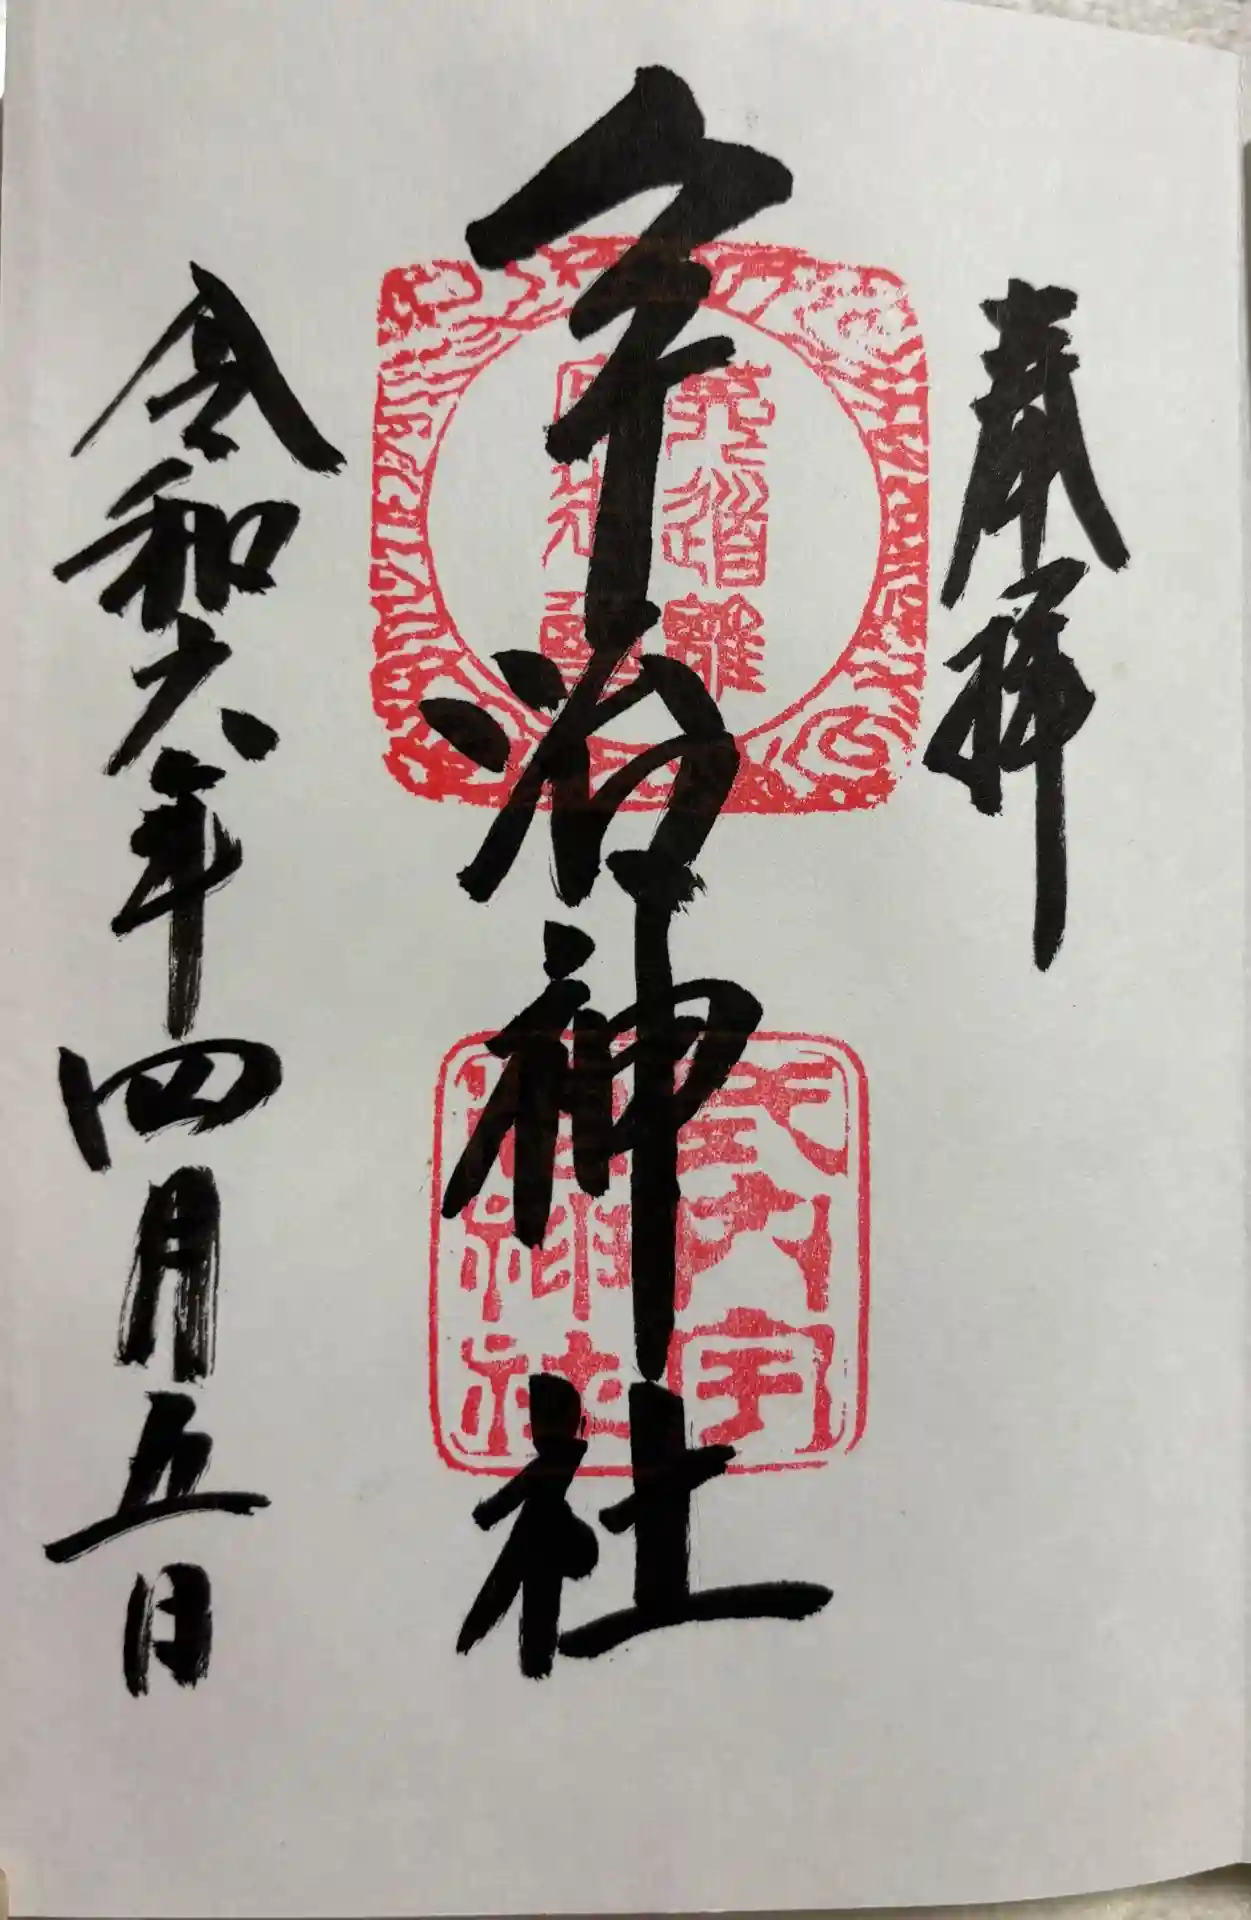 奉拝
宇治神社
菟道離
式内宇
治神社
令和六年四月五日